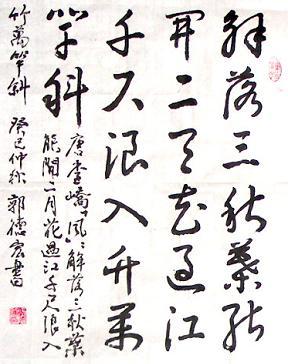 解落三秋葉能
開二月花過江
千尺浪入竹萬
竿斜
唐李嶠《風》：解落三秋葉
能開二月花過江千尺浪入
竹萬竿斜 癸巳仲秋 郭德宏書